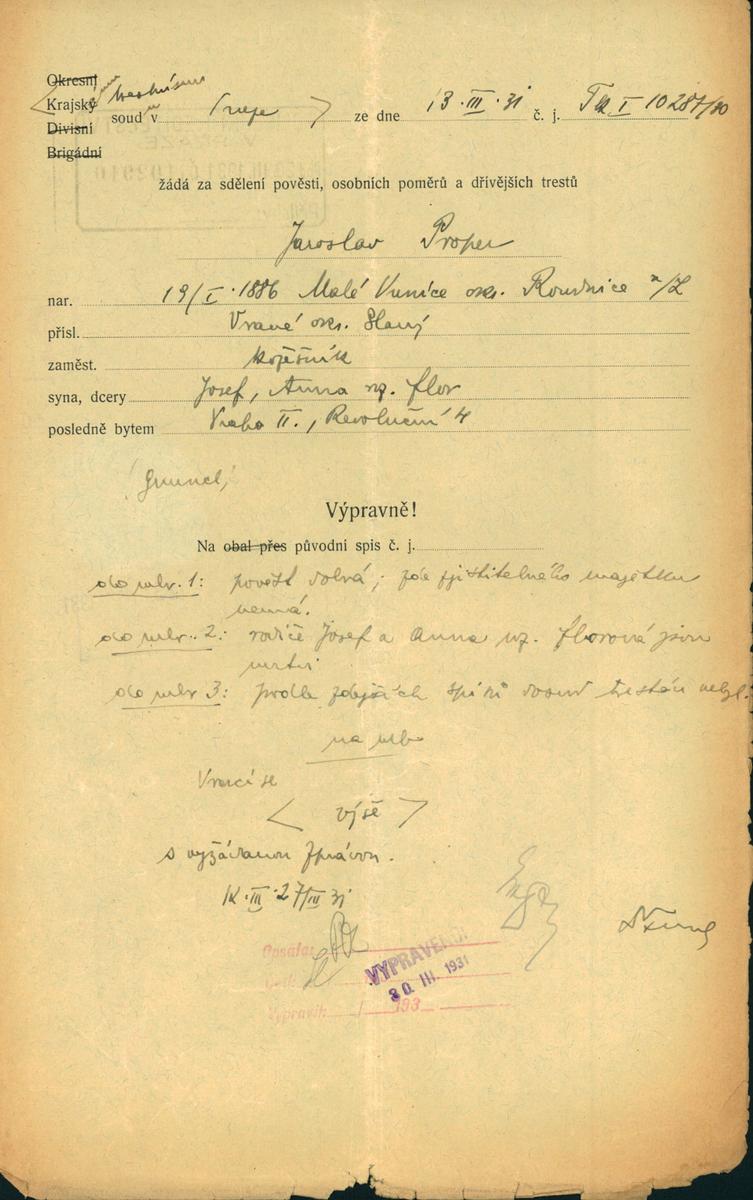 Okresní
Krajský trestnímu
soud v Praze ze dne 13.III.31 č. j. Tk I 10287/30
Divisní
Brigádní
žádá za sdělení pověsti, osobních poměrů a dřívějších trestů
Jaroslav Proper
nar. 19/I.1886 Malé okr. Roudnice n/L
přísl. Vrané okr. Slaný
zaměst. kožešník
syna, dcery Josef, Anna roz. Flor
posledně bytem Praha II., Revoluční 4
Výpravně!
Na obal přes původní spis č. j.
1: pověst dobrá; zde zjistitelného majetku
nemá.
2: rodiče Josef a Anna roz. Florová jsou
mrtvi
3: podle zdejších spisů dosud trestán nebyl.
Vrací se
výše
s vyžádanou zprávou.
K.III.27/III 31
Opsala:
VYPRAVENO:
30. III. 1931
Vypravil: / 193